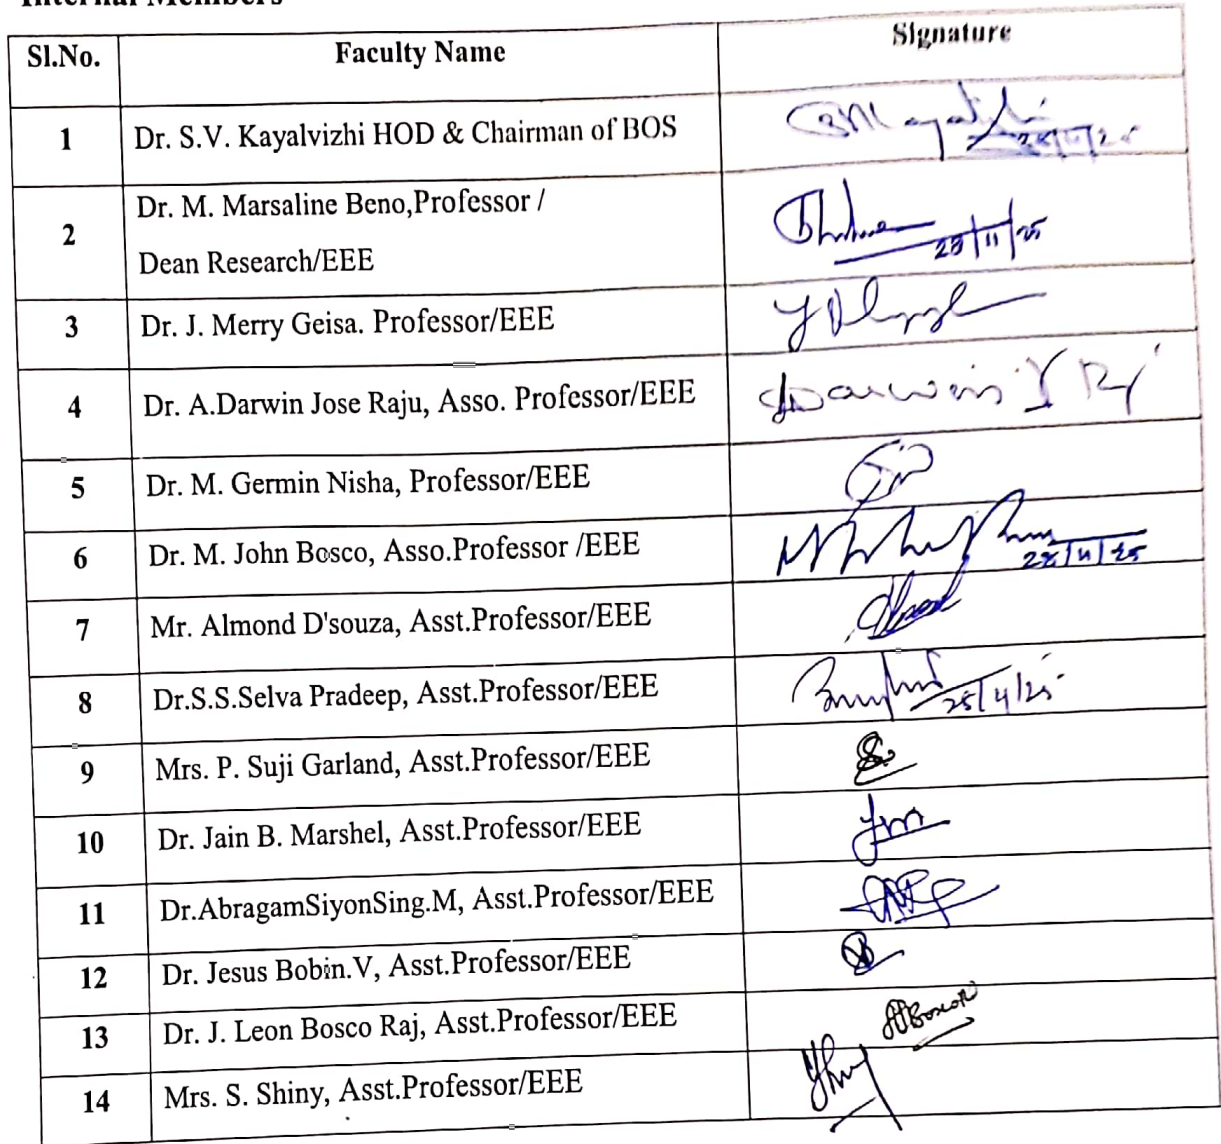 Internal Members
Sl.No. Faculty Name Signature
1 Dr. S.V. Kayalvizhi HOD & Chairman of BOS
2 Dr. M. Marsaline Beno,Professor /
Dean Research/EEE
28/11/25
3 Dr. J. Merry Geisa. Professor/EEE
4 Dr. A.Darwin Jose Raju, Asso. Professor/EEE Darwin J Raj
5 Dr. M. Germin Nisha, Professor/EEE
6 Dr. M. John Bosco, Asso.Professor /EEE 28/11/25
7 Mr. Almond D'souza, Asst.Professor/EEE
8 Dr.S.S.Selva Pradeep, Asst.Professor/EEE
9 Mrs. P. Suji Garland, Asst.Professor/EEE
10 Dr. Jain B. Marshel, Asst.Professor/EEE
11 Dr.AbragamSiyonSing.M, Asst.Professor/EEE
12 Dr. Jesus Bobin.V, Asst.Professor/EEE
13 Dr. J. Leon Bosco Raj, Asst.Professor/EEE
14 Mrs. S. Shiny, Asst.Professor/EEE